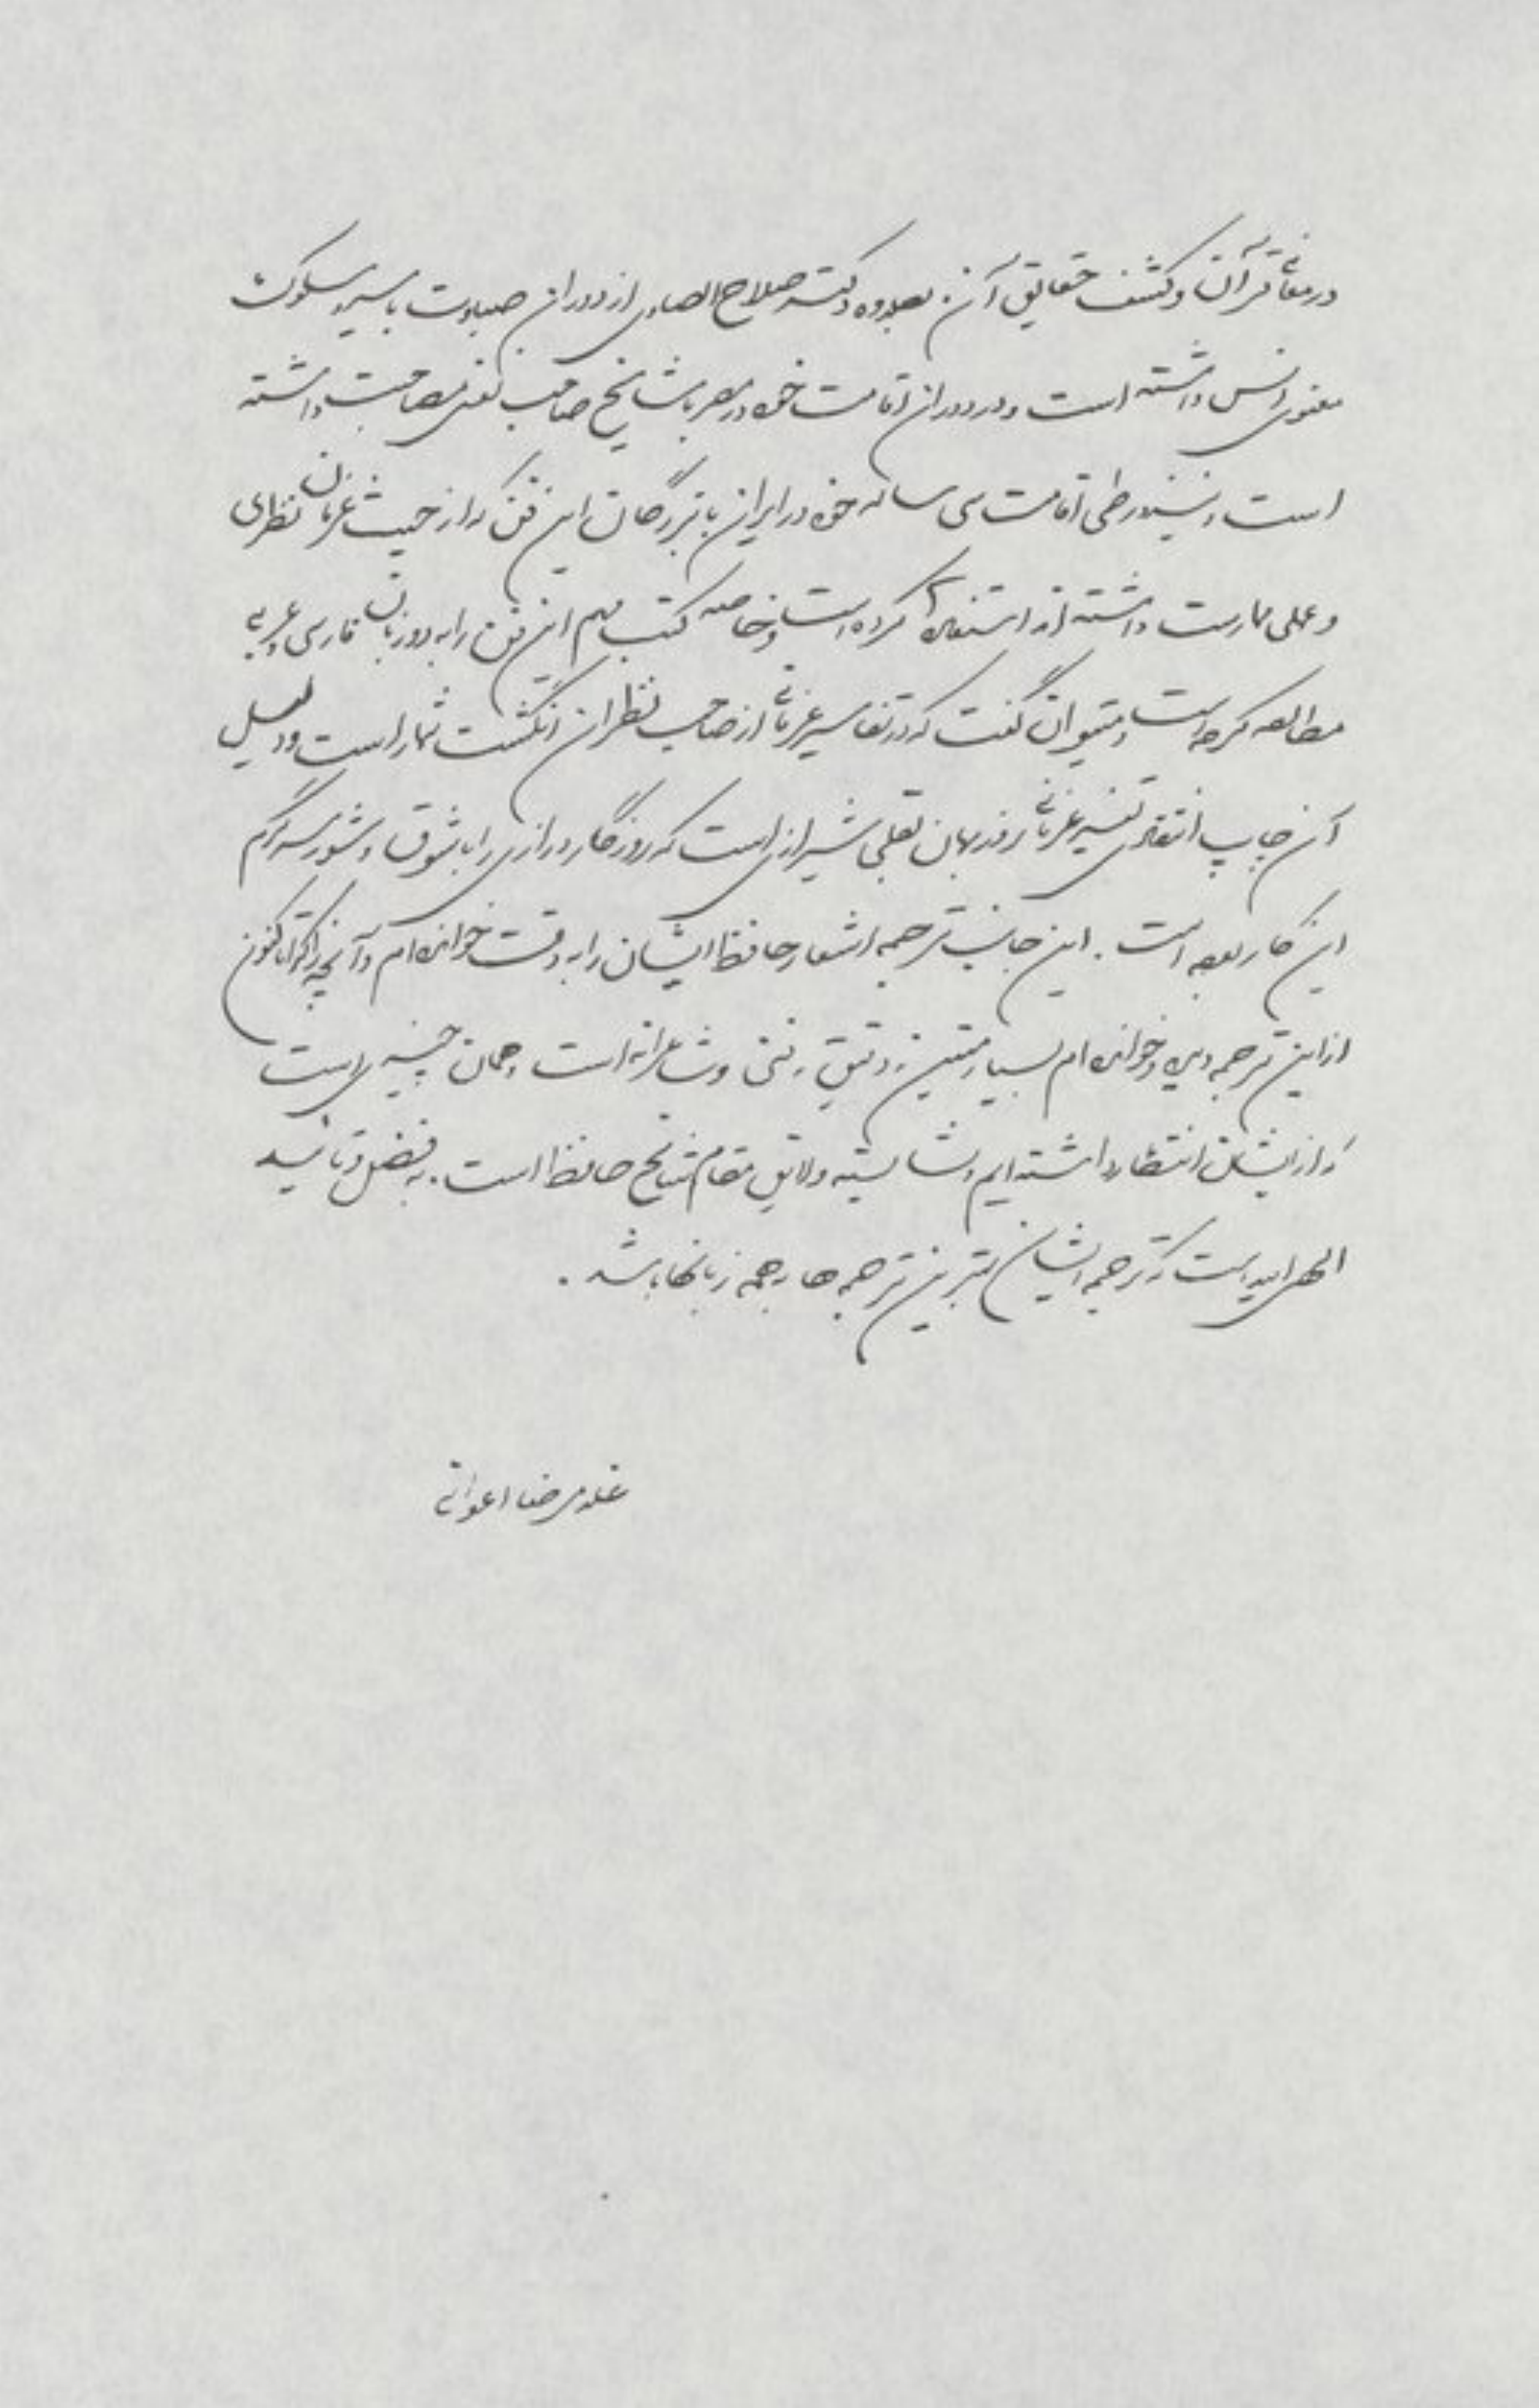 در معانی قرآن و کشف حقایق آن . بعلاوه دکتر صلاح الصاوی از دوران صباوت با سیر و سلوک
معنوی انس داشته است و در دوران اقامت خود در مصر با مشایخ صاحب نفس مصاحبت داشته
است و نیز در طی اقامت سی ساله خود در ایران با بزرگان این فن که از حیث عرفان نظری
و عملی ممارست داشته اند استفاده کرده است و خاصه کتب مهم این فن را به دو زبان فارسی و عربی
مطالعه کرده است و میتوان گفت که در تفاسیر عرفانی از صاحب نظران انگشت شمار است و دلیل
آن چاپ انتقادی تفسیر عرفانی روزبهان بقلی شیرازی است که روزگار درازی را با شوق و شور سرگرم
این کار بوده است . این جانب ترجمه اشعار حافظ ایشان را به دقت خوانده ام و آنچه را که تا کنون
از این ترجمه دیده و خوانده ام بسیار متین و دقیق و فنی و شاعرانه است و همان چیزی است
که از ایشان انتظار داشته ایم و شایسته و لایق مقام شامخ حافظ است . به فضل و تایید
الهی امید است که ترجمه ایشان بهترین ترجمه ها در همه زبانها باشد .
غلامرضا اعوانی